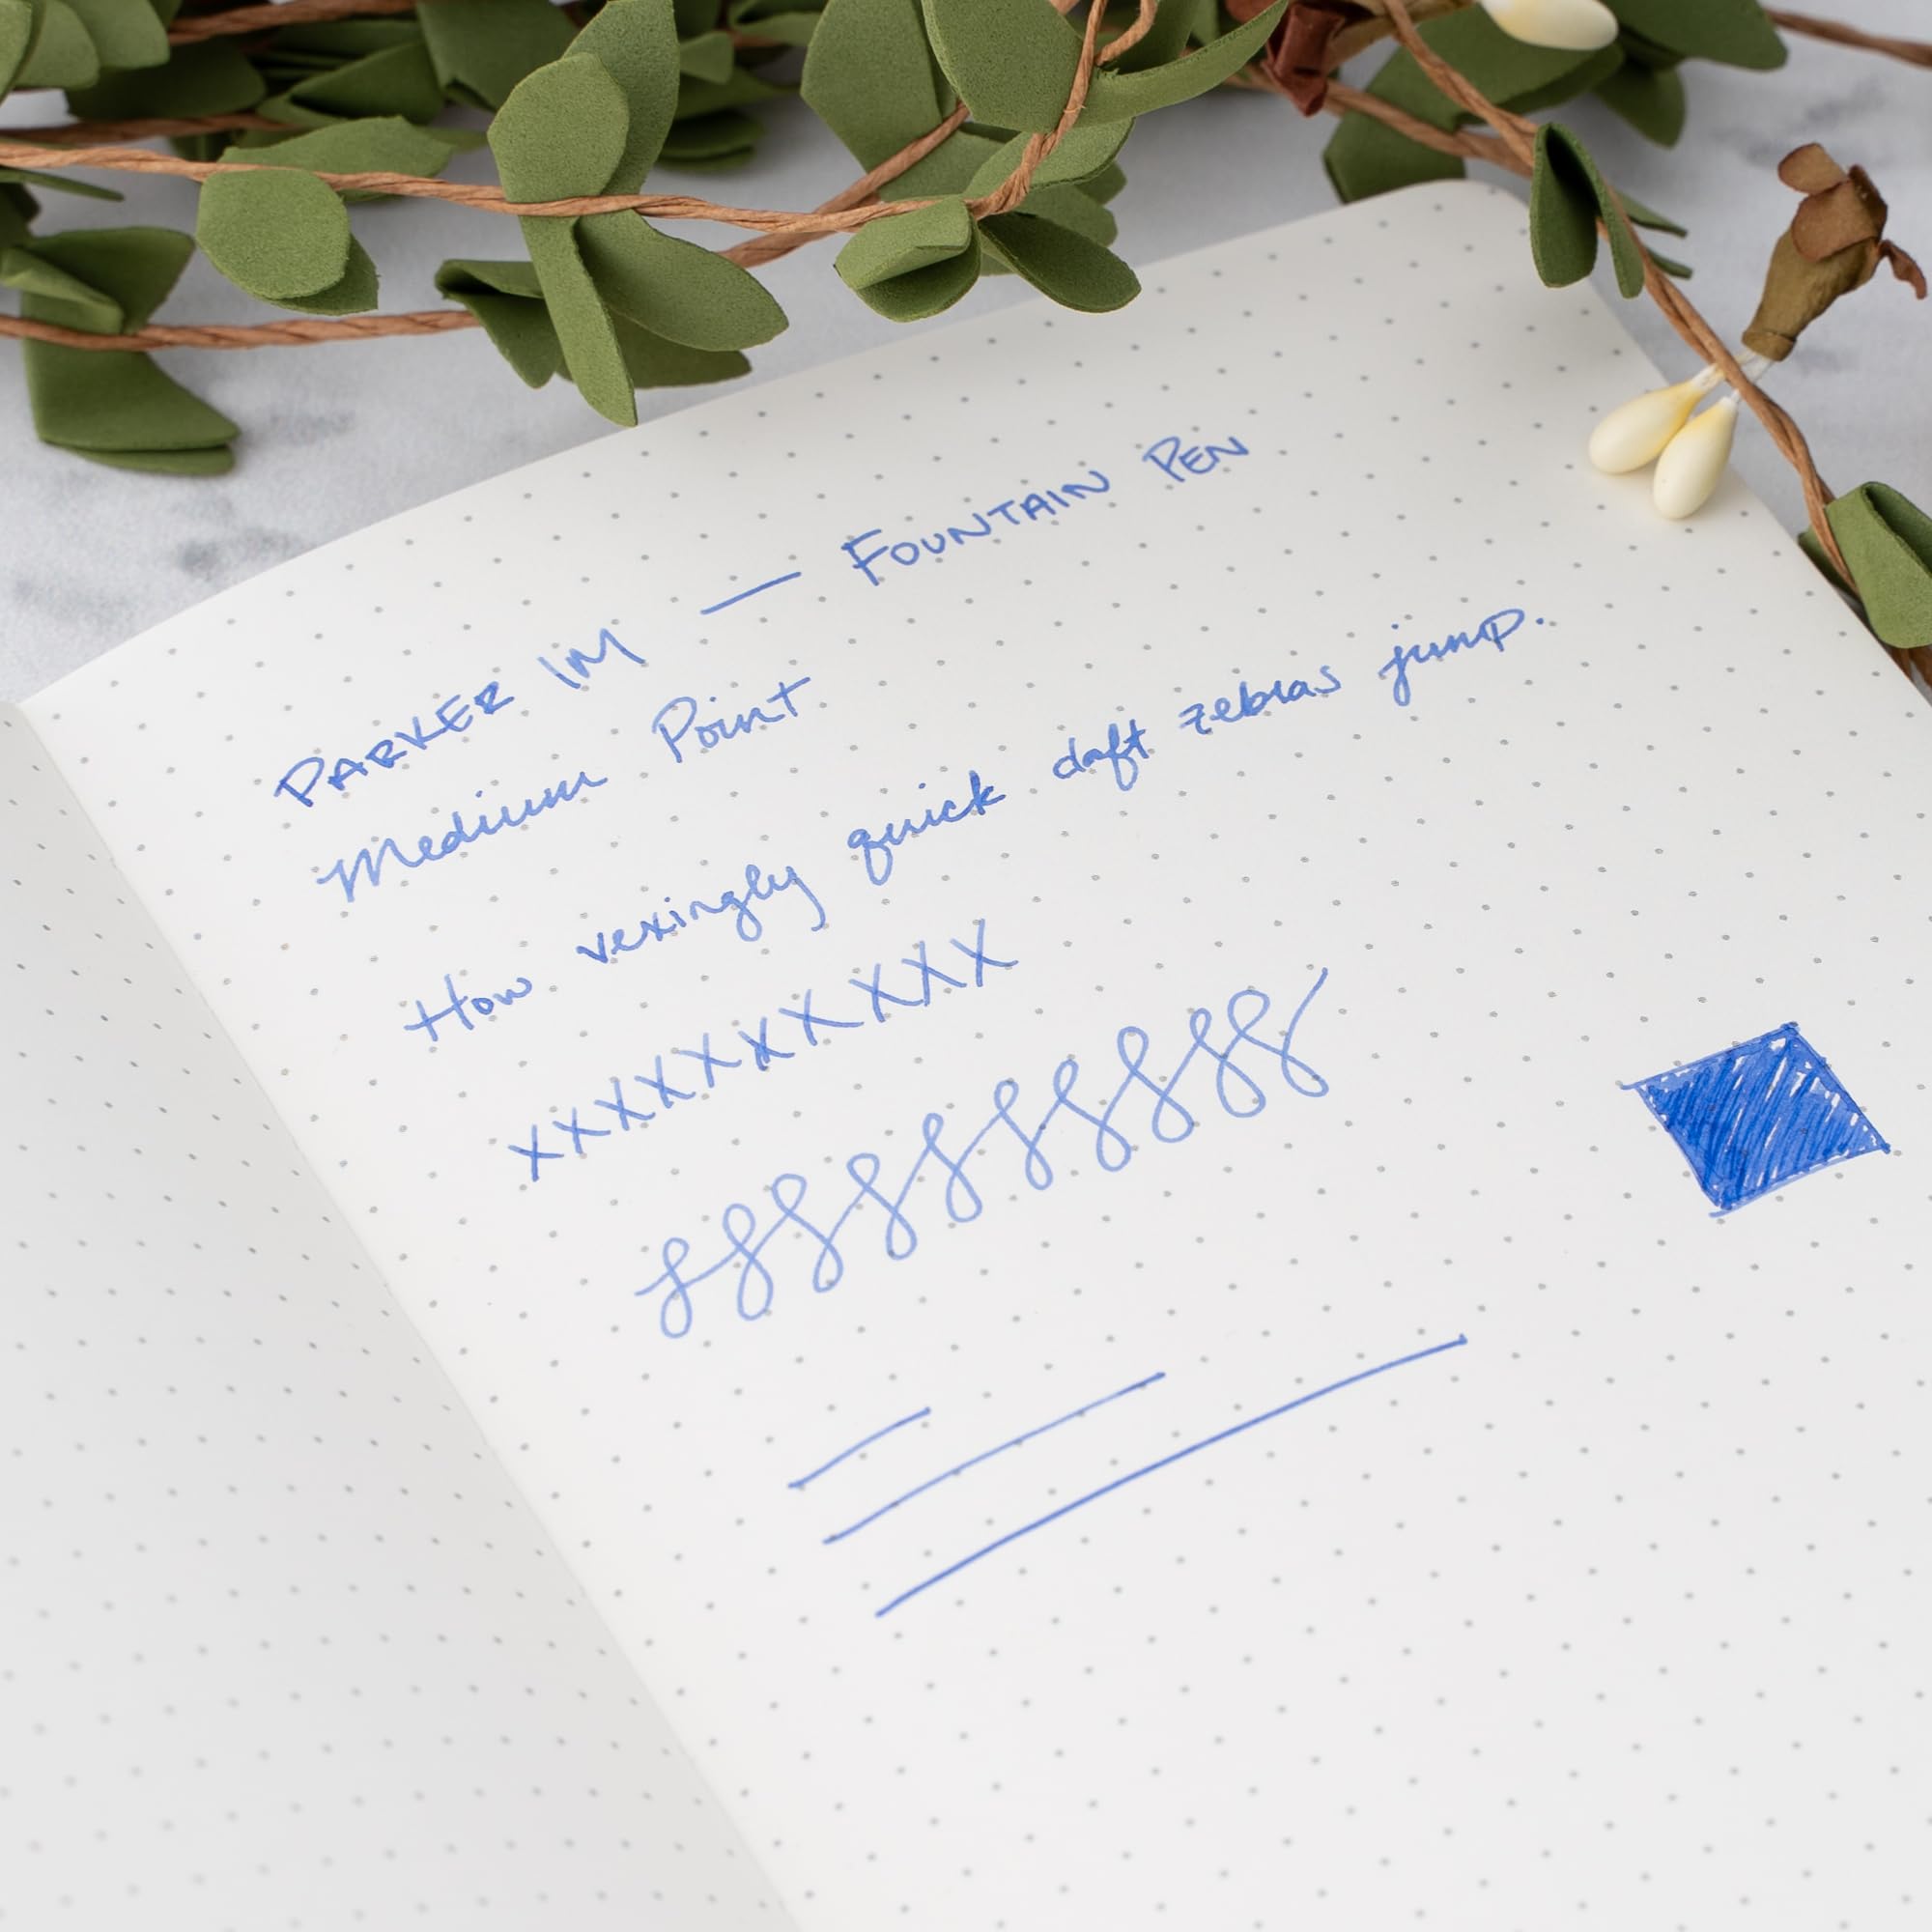 PARKER IM — FOUNTAIN PEN
Medium Point
How vexingly quick daft zebras jump.
XXXXXXXXXX